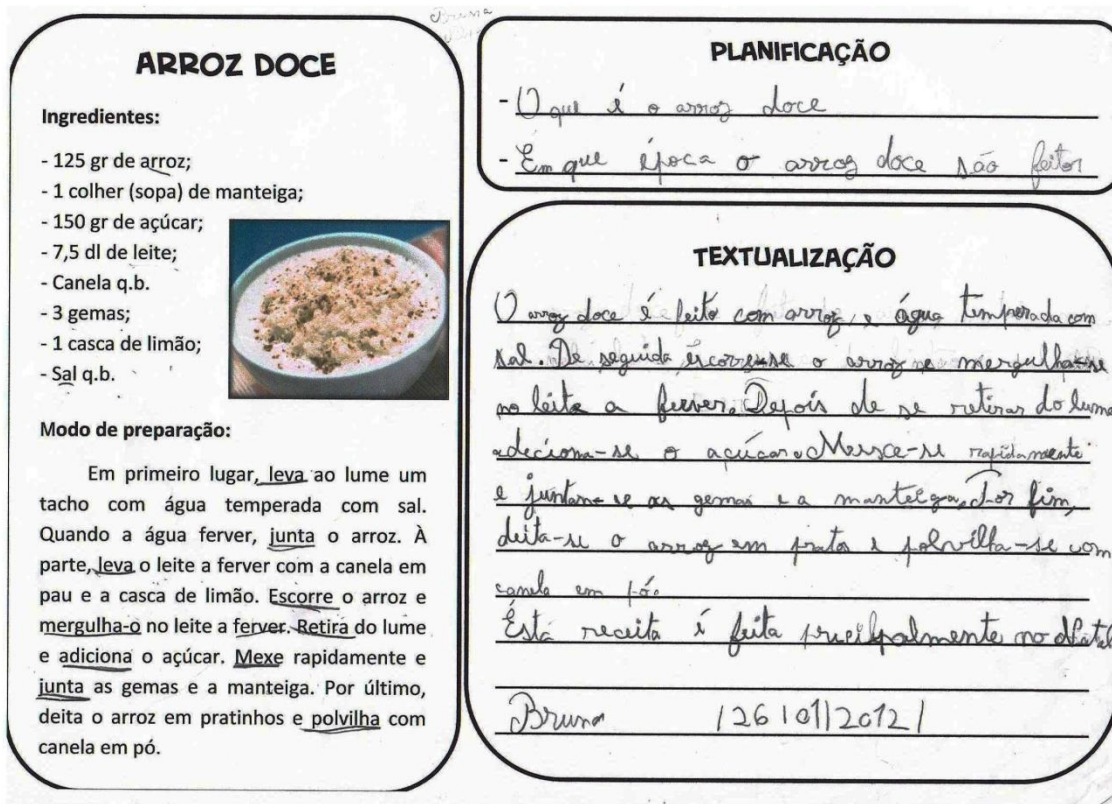 Bruna
ARROZ DOCE
Ingredientes:
- 125 gr de arroz;
- 1 colher (sopa) de manteiga;
- 150 gr de açúcar;
- 7,5 dl de leite;
- Canela q.b.
- 3 gemas;
- 1 casca de limão;
- Sal q.b.
Modo de preparação:
Em primeiro lugar, leva ao lume um
tacho com água temperada com sal.
Quando a água ferver, junta o arroz. À
parte, leva o leite a ferver com a canela em
pau e a casca de limão. Escorre o arroz e
mergulha-o no leite a ferver. Retira do lume
e adiciona o açúcar. Mexe rapidamente e
junta as gemas e a manteiga. Por último,
deita o arroz em pratinhos e polvilha com
canela em pó.
PLANIFICAÇÃO
- O que é o arroz doce
- Em que época o arroz doce são feitos
TEXTUALIZAÇÃO
O arroz doce é feito com arroz, e água temperada com
sal. De seguida escorre-se o arroz e mergulha-se
no leite a ferver. Depois de se retirar do lume
adeciona-se o açúcar. Mexe-se rapidamente
e juntan-se as gemas e a manteiga. Por fim,
deita-se o arroz em pratos e polvilha-se com
canela em pó.
Está receita é feita prucipalmente no Natal
Bruna /26/01/2012/